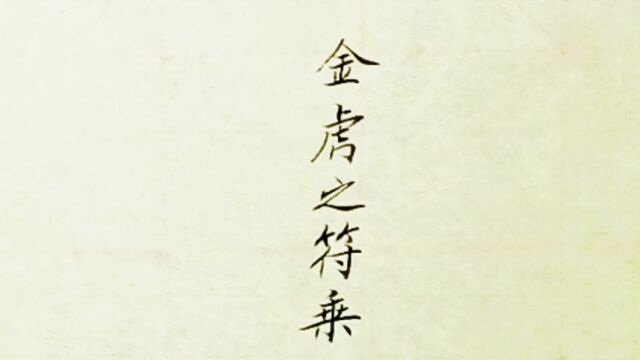 金虎之符乗